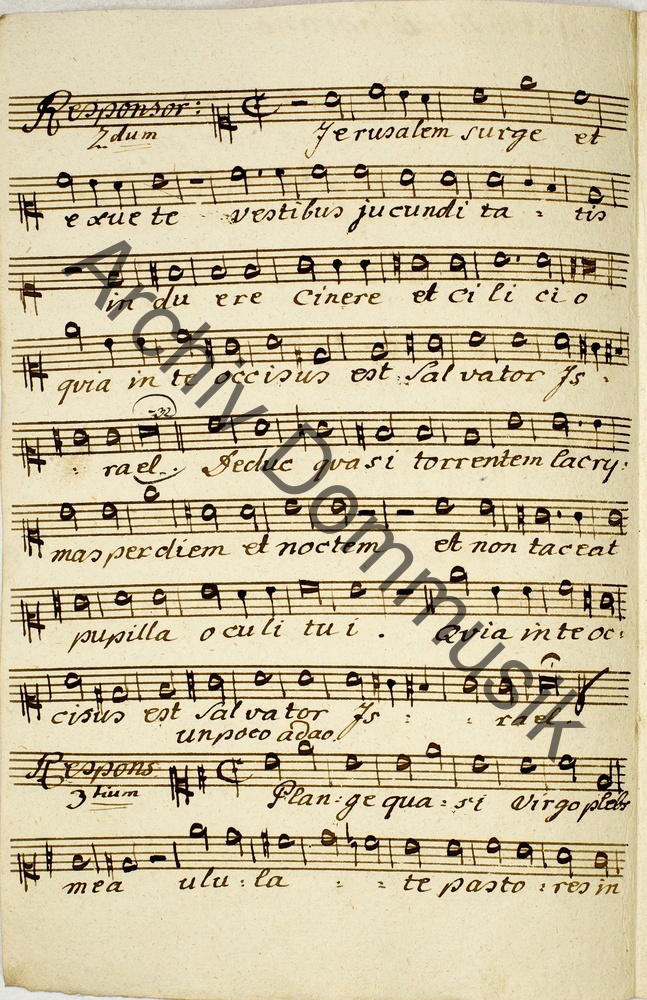 Responsor:
2dum
Jerusalem surge et
exue te vestibus jucundi ta - tis
in du ere Cinere et Ci li ci o
quia in te occisus est Sal vator Js -
- rael. Deduc quasi torrentem lacry:
mas per diem et noctem et non taceat
pupilla oculi tui. Quia in te oc:
cisus est Sal vator Js - - rael.
un poco adao.
Respons
3tium
Plan-ge qua-si Virgo plebs
mea ulu-la - - te pasto-res in
Archiv Dommusik